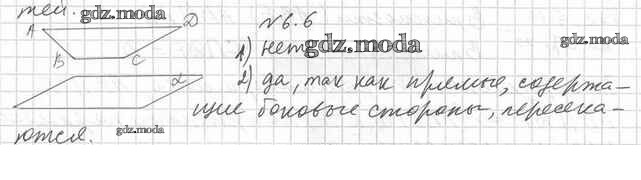 тей. gdz.moda
A D
B C
α
N 6.6
1) нет gdz.moda
gdz.moda
2) да, так как прямые, содержа-
щие боковые стороны, пересека-
ются. gdz.moda